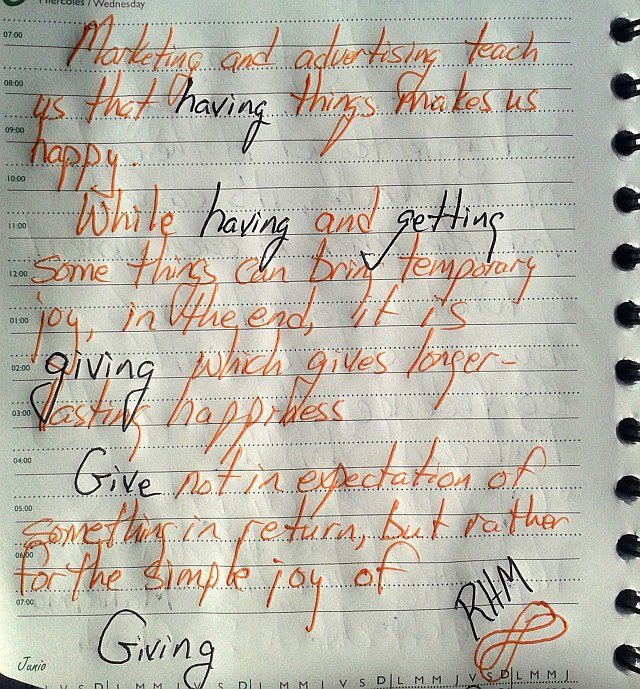 Miércoles / Wednesday
07:00
Marketing and advertising teach
08:00
us that having things makes us
09:00
happy.
10:00
While having and getting
11:00
some things can bring temporary
12:00
joy, in the end, it is
01:00
giving which gives longer-
02:00
lasting happiness
03:00
04:00
Give not in expectation of
05:00
something in return, but rather
06:00
for the simple joy of
07:00
RHM
Giving
Junio
V S D L M M J V S D L M M J V S D L M M J V S D L M M J